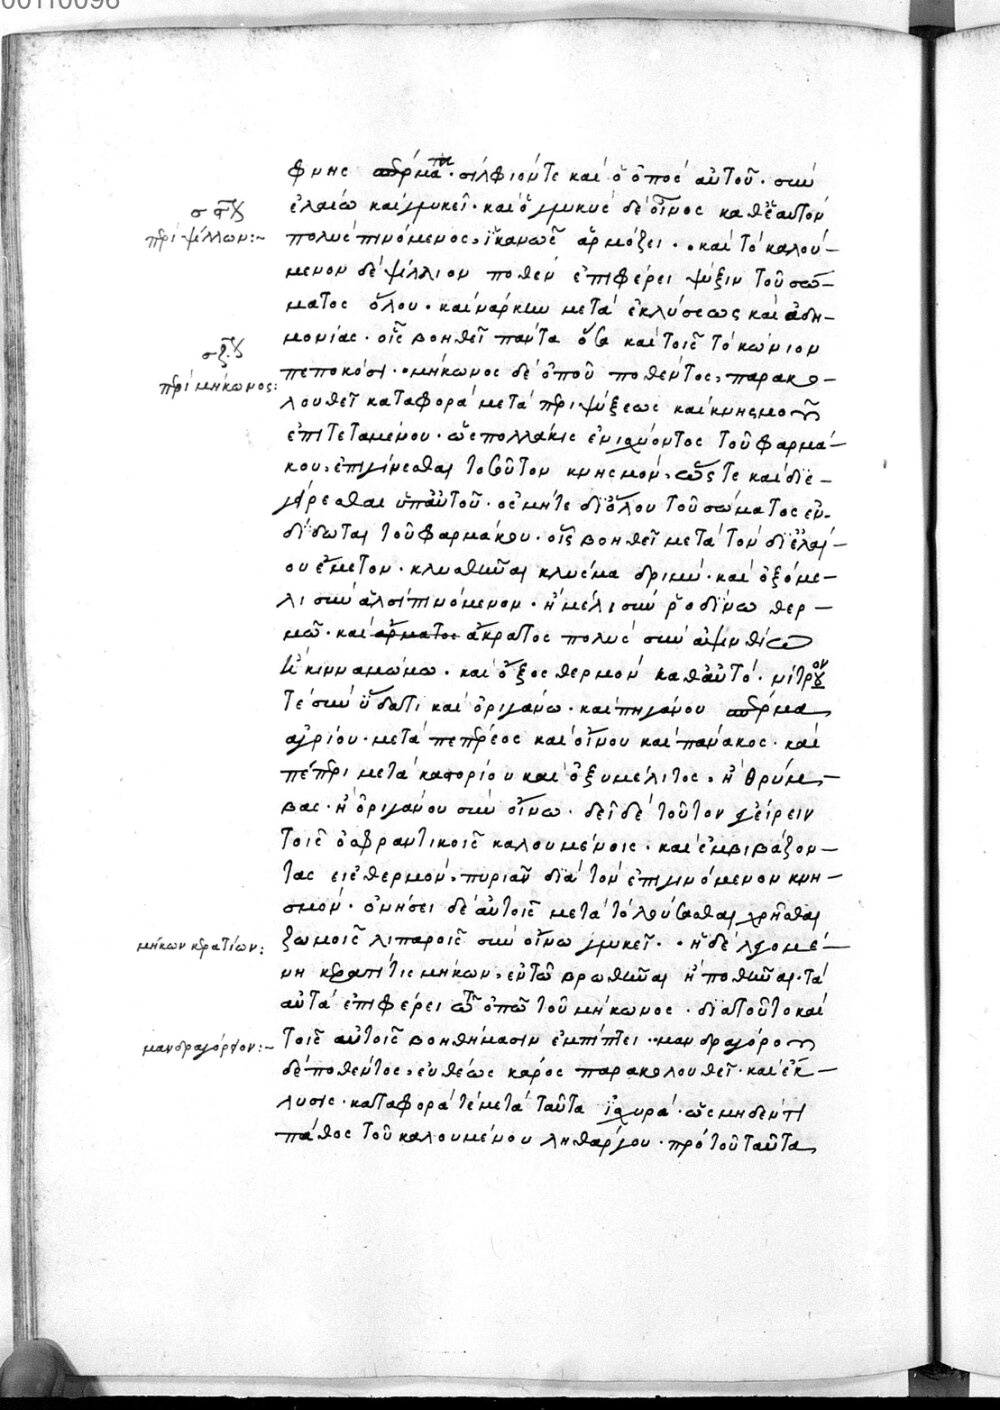 φνης σπέρματα· σίλφιόν τε καὶ ὁ ὀπὸς αὐτοῦ· σὺν
ἐλαίω καὶ γλυκεῖ· καὶ ὁ γλυκὺς δὲ οἶνος καθ' ἑαυτὸν
πολὺς πινόμενος, ἱκανῶς ἁρμόζει·· καὶ τὸ καλού-
μενον δὲ ψίλλιον ποθὲν ἐπιφέρει ψύξιν τοῦ σώ-
ματος ὅλου· καὶ νάρκην μετὰ ἐκλύσεως καὶ ἀδη-
μονίας· οἷς βοηθεῖ πάντα ὅσα καὶ τοῖς τὸ κώνιον
πεπωκόσι·· μήκωνος δὲ ὀποῦ ποθέντος, παρακο-
λουθεῖ καταφορὰ μετὰ περιψύξεως καὶ κνησμοῦ
ἐπιτεταμένου· ὡς πολλάκις ἐνισχύοντος τοῦ φαρμά-
κου, ἐπιγίνεσθαι τοσοῦτον κνησμὸν, ὥς τε καὶ διε-
γείρεσθαι ὑπ' αὐτοῦ· ὀσμή τε δι' ὅλου τοῦ σώματος ἐν-
δίδωται τοῦ φαρμάκου· οἷς βοηθεῖ μετὰ τὸν δι' ἐλαί-
ου ἔμετον· κλυσθῆναι κλύσμα δριμύ· καὶ ὀξόμε-
λι σὺν ἁλσὶ πινόμενον· ἢ μέλι σὺν ῥοδίνω θερ-
μῶ· καὶ ἄκρατος πολὺς σὺν ἀψινθίω
ἢ κινναμώμω· καὶ ὄξος θερμὸν καθ' αὐτό· νίτρον
τε σὺν ὕδατι καὶ ὀριγάνω· καὶ πηγάνου σπέρμα
ἀγρίου· μετὰ πεπέρεος καὶ οἴνου καὶ πάνακος· καὶ
πέπερι μετὰ καστορίου καὶ ὀξυμέλιτος, ἢ θρύμ-
βας· ἢ ὀριγάνου σὺν οἴνω· δεῖ δὲ τοῦτον ἐγείρειν
τοῖς ὀσφραντικοῖς καλουμένοις· καὶ ἐμβιβάζον-
τας εἰς θερμόν, πυριᾶν διὰ τὸν ἐπιγινόμενον κνη-
σμόν· ὀνήσει δὲ αὐτοῖς μετὰ τὸ λούσασθαι χρῆσθαι
ζωμοῖς λιπαροῖς σὺν οἴνω γλυκεῖ·· ἡ δὲ λεγομέ-
νη κερατίτις μήκων, ἐν τῶ βρωθῆναι ἢ ποθῆναι· τὰ
αὐτὰ ἐπιφέρει τῶ ὀπῶ τοῦ μήκωνος· διὰ τοῦτο καὶ
τοῖς αὐτοῖς βοηθήμασιν ἐμπίπτει·· μανδραγόρου
δὲ ποθέντος, εὐθέως κάρος παρακολουθεῖ· καὶ ἔκ-
λυσις· καταφορά τε μετὰ ταῦτα ἰσχυρά· ὡς μηδέν τι
πάθος τοῦ καλουμένου ληθάργου· πρὸ τοῦ ταῦτα
περὶ ψίλλων:~
περὶ μήκωνος:
μήκων κερατίων:
μανδραγόρεον:~